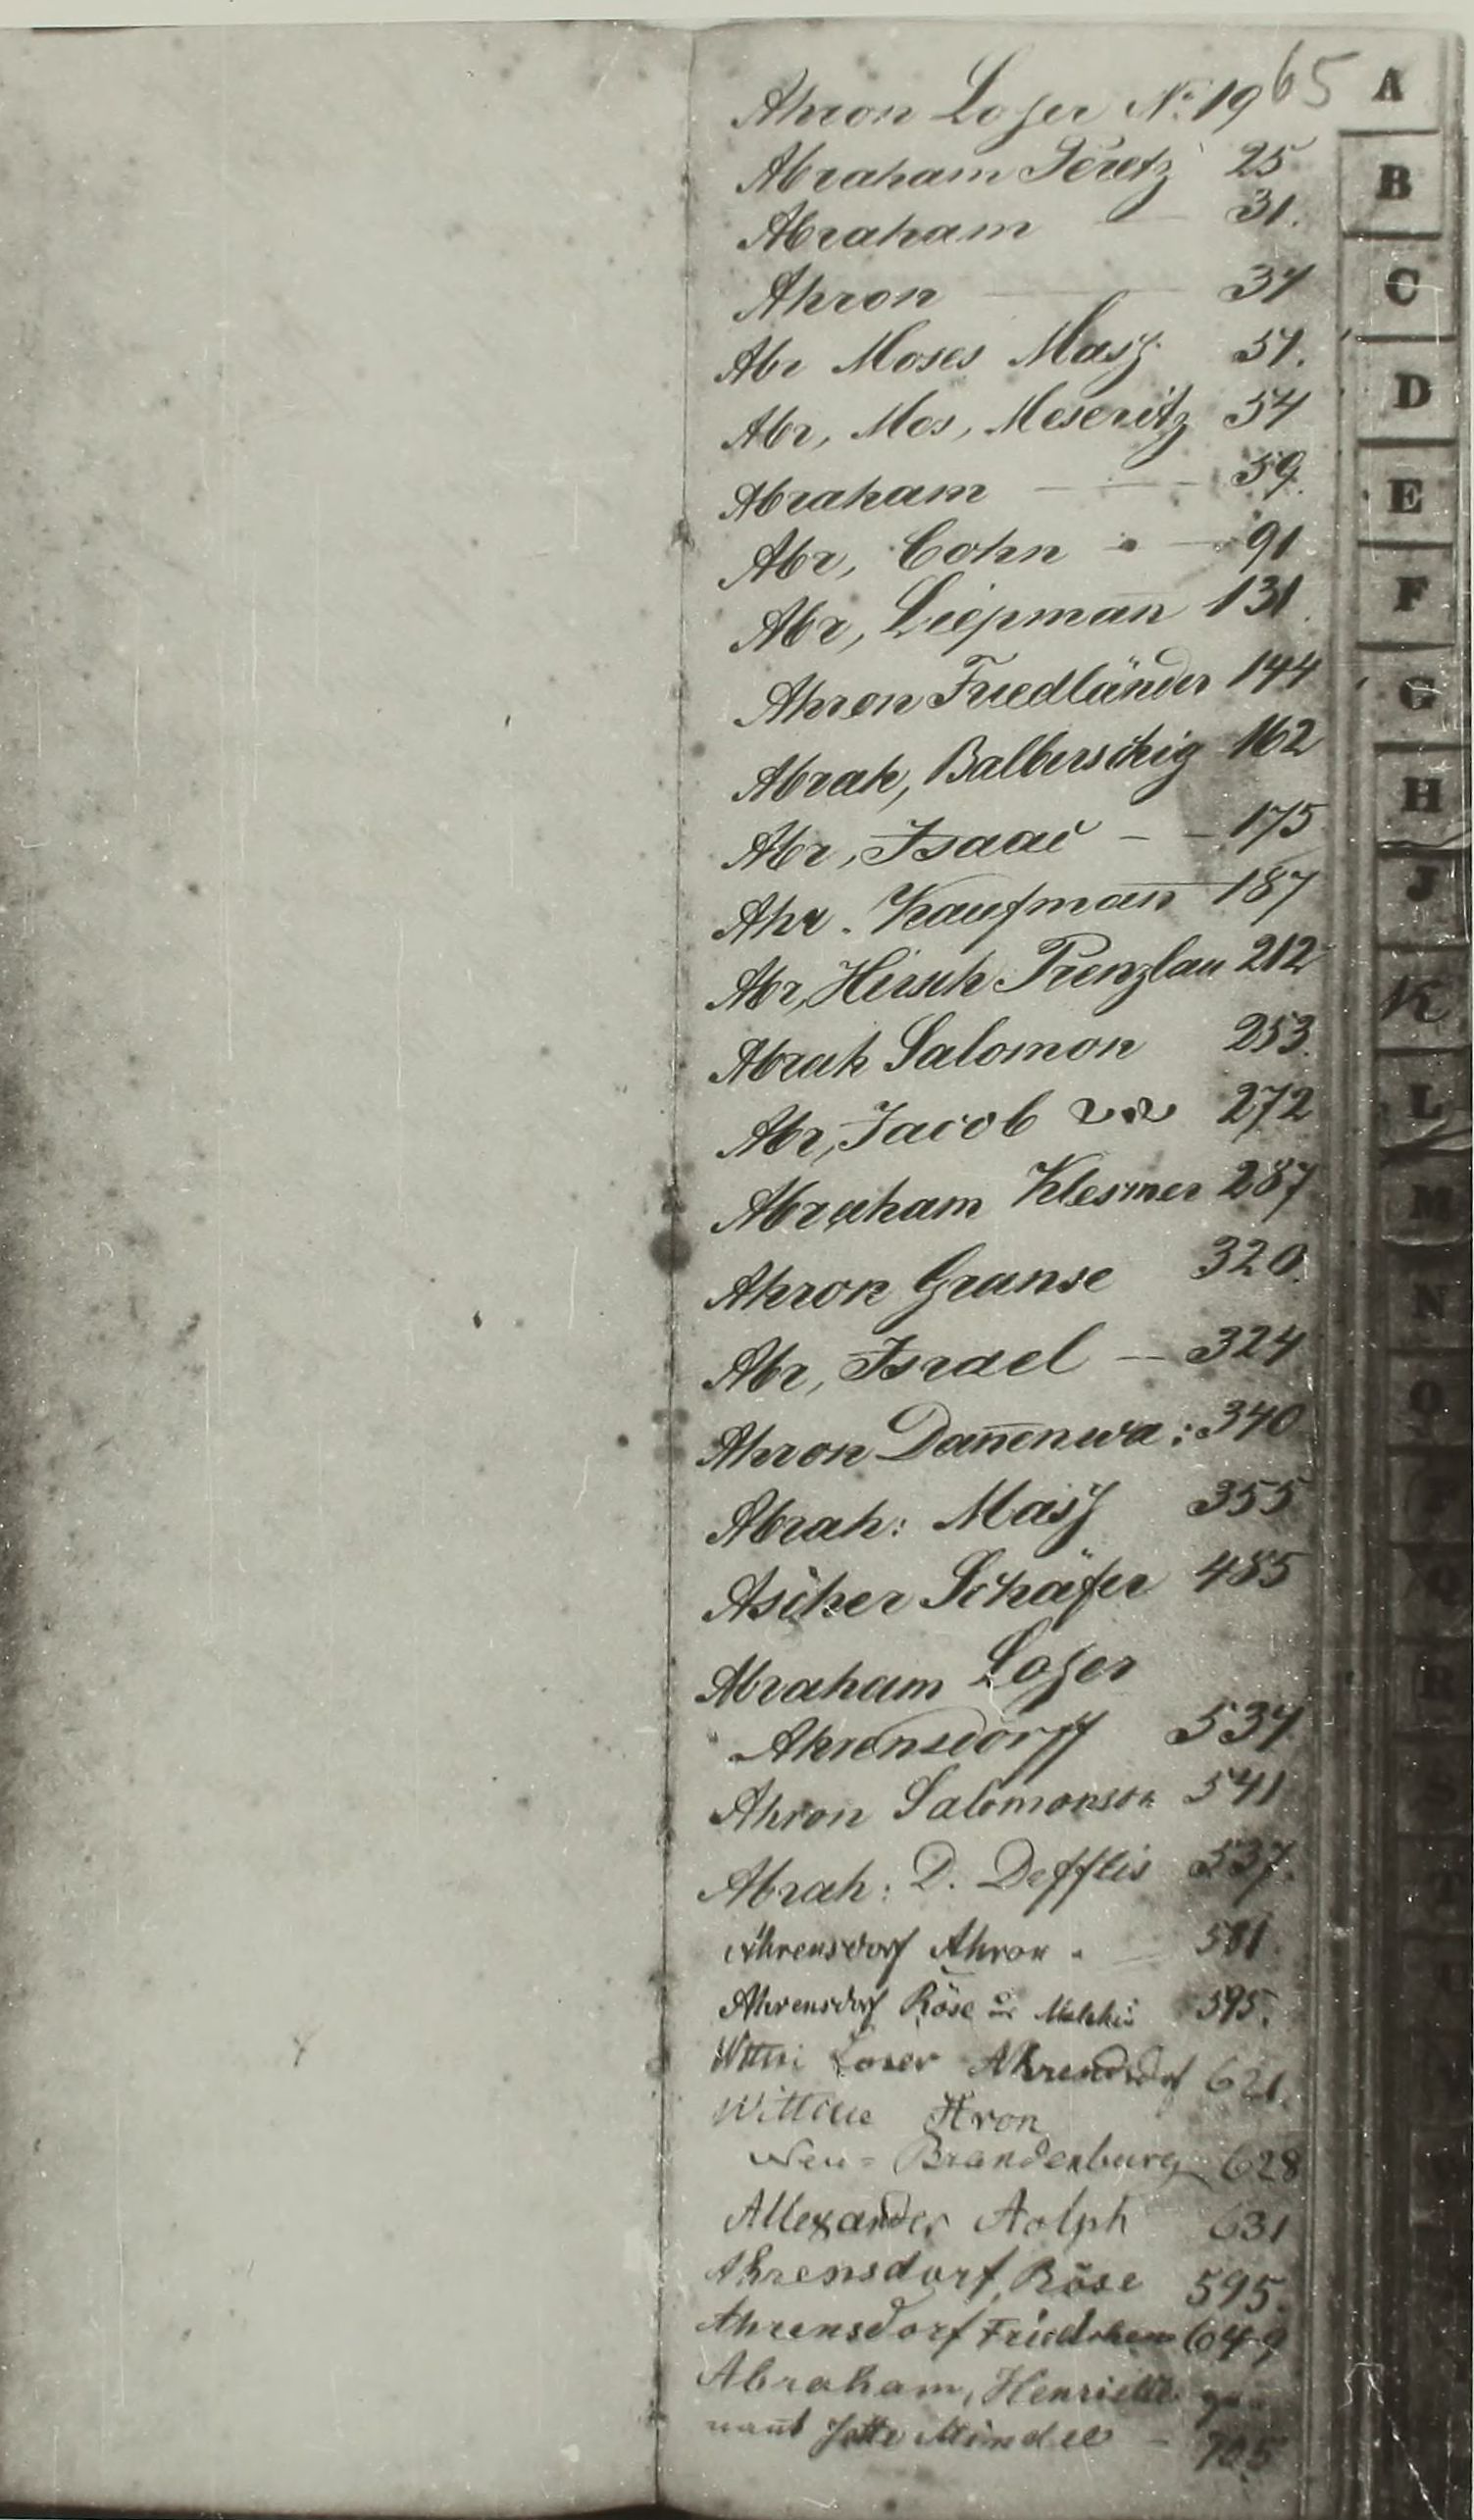 65
Ahron Loser No. 19
Abraham Peretz 25
Abraham — 31.
Ahron — 34
Abr Moses Masz 51.
Abr, Mos, Meseritz 54
Abraham — 59.
Abr, Cohn — 91
Abr, Liepman̄ 131.
Ahron Friedländer 144
Abrah, Balberschig 162
Abr, Isaac — — 175
Ahr. Kaufman̄ 187
Abr, Hirsch Prenzlau 212
Abrah Salomon 253.
Abr, Jacob 272
Abraham Klesmer 287
Ahron Granse 320.
Abr, Israel — 324
Ahron Dan̄enwa: 340
Abrah: Masz 355
Ascher Schäfer 485
Abraham Loser
Ahrensdorff 534
Ahron Salomonson 541
Abrah: D. Defflis 537.
Ahrensdorf Ahron - 581.
Ahrensdorf Röse 595.
Loser Ahrendsdorf 621.
Wittwe Aron
Neu=Brandenburg 628
Allexander Adolph 631
Ahrensdorf, Röse 595.
Ahrensdorf Friedchen 649
Abraham, Henriette ge-
nan̄t Jette Mindel — 705
A
B
C
D
E
F
G
H
J
K
L
M
N
O
R